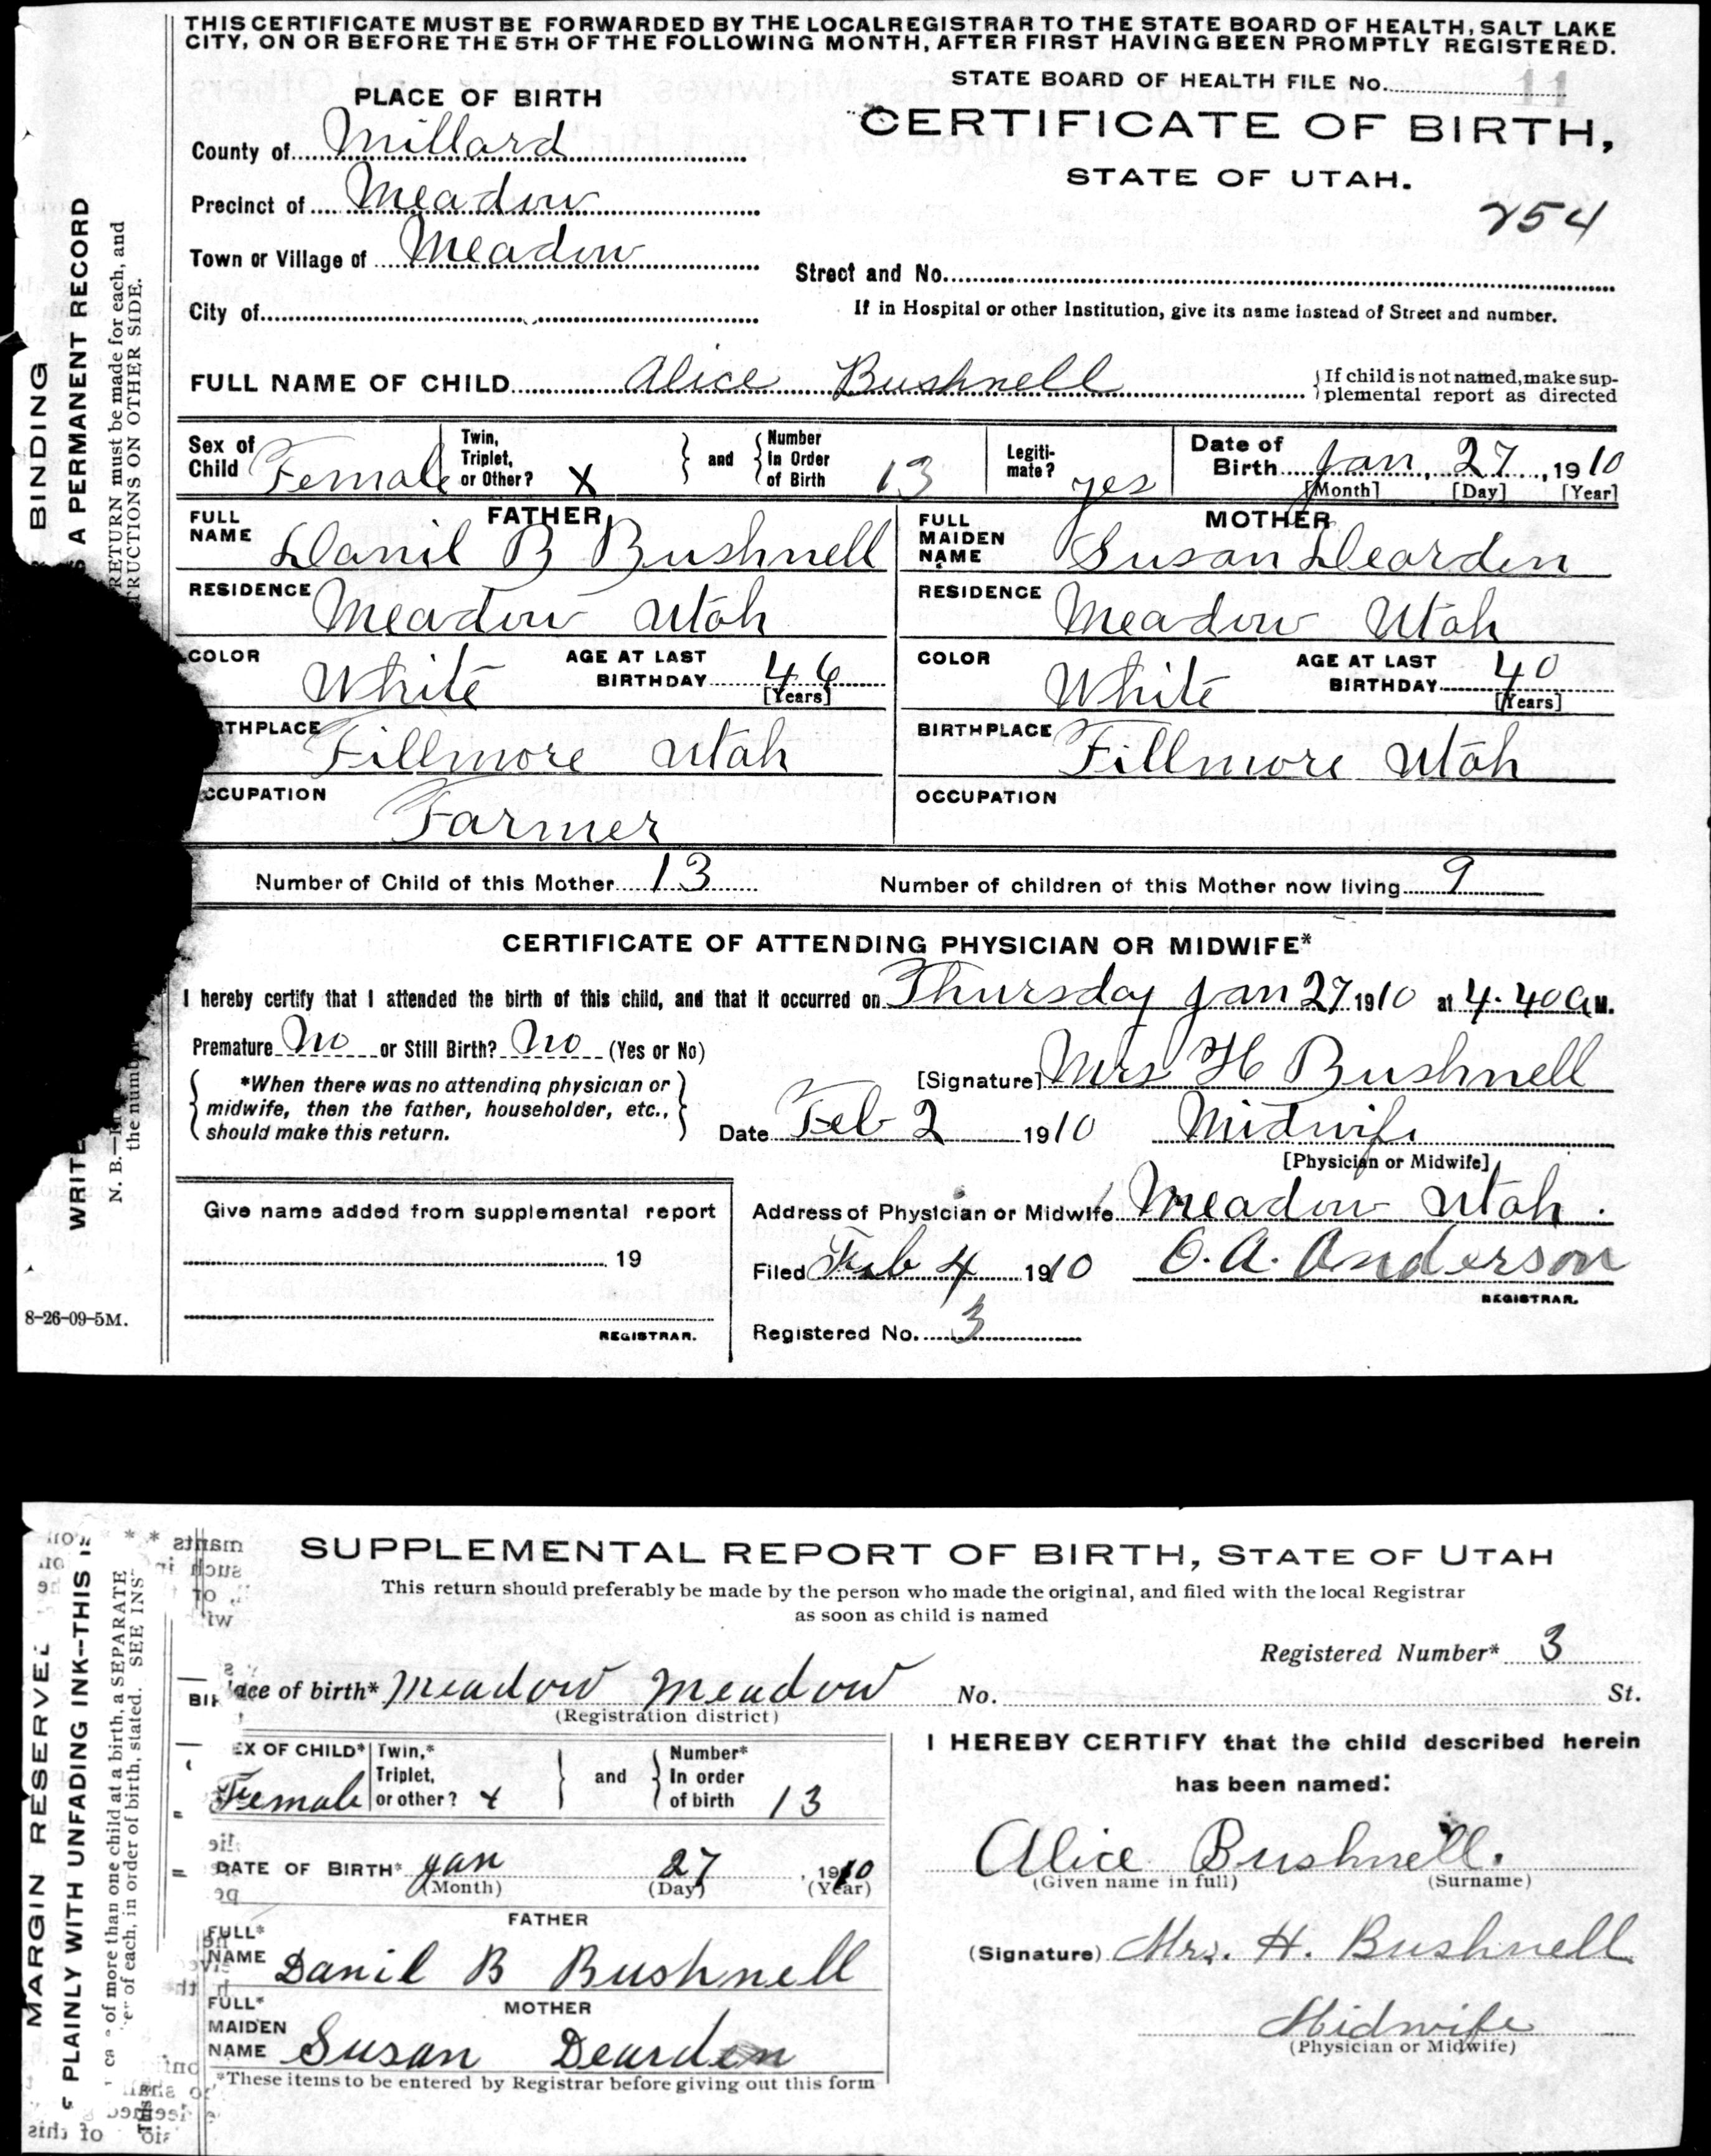 THIS CERTIFICATE MUST BE FORWARDED BY THE LOCAL REGISTRAR TO THE STATE BOARD OF HEALTH, SALT LAKE
CITY, ON OR BEFORE THE 5TH OF THE FOLLOWING MONTH, AFTER FIRST HAVING BEEN PROMPTLY REGISTERED.
STATE BOARD OF HEALTH FILE No. 11
PLACE OF BIRTH
CERTIFICATE OF BIRTH,
County of Millard
STATE OF UTAH.
Precinct of Meadow
254
Town or Village of Meadow
Street and No.
City of
If in Hospital or other Institution, give its name instead of Street and number.
FULL NAME OF CHILD Alice Bushnell
If child is not named, make sup-
plemental report as directed
Sex of Child Female
Twin, Triplet, or Other? X
and Number In Order of Birth 13
Legiti-mate? yes
Date of Birth Jan 27, 1910
[Month] [Day] [Year]
FATHER
FULL NAME Danil B Bushnell
MOTHER
FULL MAIDEN NAME Susan Dearden
RESIDENCE Meadow Utah
RESIDENCE Meadow Utah
COLOR White AGE AT LAST BIRTHDAY 46 [Years]
COLOR White AGE AT LAST BIRTHDAY 40 [Years]
THPLACE Fillmore Utah
BIRTHPLACE Fillmore Utah
CCUPATION Farmer
OCCUPATION
Number of Child of this Mother 13 Number of children of this Mother now living 9
CERTIFICATE OF ATTENDING PHYSICIAN OR MIDWIFE*
I hereby certify that I attended the birth of this child, and that it occurred on Thursday Jan 27 1910 at 4.40 a M.
Premature No or Still Birth? No (Yes or No)
*When there was no attending physician or
midwife, then the father, householder, etc.,
should make this return.
[Signature] Mrs H Bushnell
Date Feb 2 1910 Midwife
[Physician or Midwife]
Give name added from supplemental report
19
REGISTRAR.
Address of Physician or Midwife Meadow Utah.
Filed Feb 4 1910 O. A. Anderson
REGISTRAR.
Registered No. 3
BINDING
A PERMANENT RECORD
RETURN must be made for each, and
TRUCTIONS ON OTHER SIDE.
WRITE
N. B.—
the numb
8-26-09-5M.
SUPPLEMENTAL REPORT OF BIRTH, STATE OF UTAH
This return should preferably be made by the person who made the original, and filed with the local Registrar
as soon as child is named
Registered Number* 3
ace of birth* Meadow Meadow No. St.
(Registration district)
EX OF CHILD* Female
Twin,* Triplet, or other? x
and Number* In order of birth 13
DATE OF BIRTH* Jan 27, 1910
(Month) (Day) (Year)
FATHER
FULL* NAME Danil B Bushnell
MOTHER
FULL* MAIDEN NAME Susan Dearden
*These items to be entered by Registrar before giving out this form
I HEREBY CERTIFY that the child described herein
has been named:
Alice Bushnell.
(Given name in full) (Surname)
(Signature) Mrs. H. Bushnell
Midwife
(Physician or Midwife)
MARGIN RESERVE
PLAINLY WITH UNFADING INK--THIS IS
of more than one child at a birth, a SEPARATE
er of each, in order of birth, stated. SEE INS